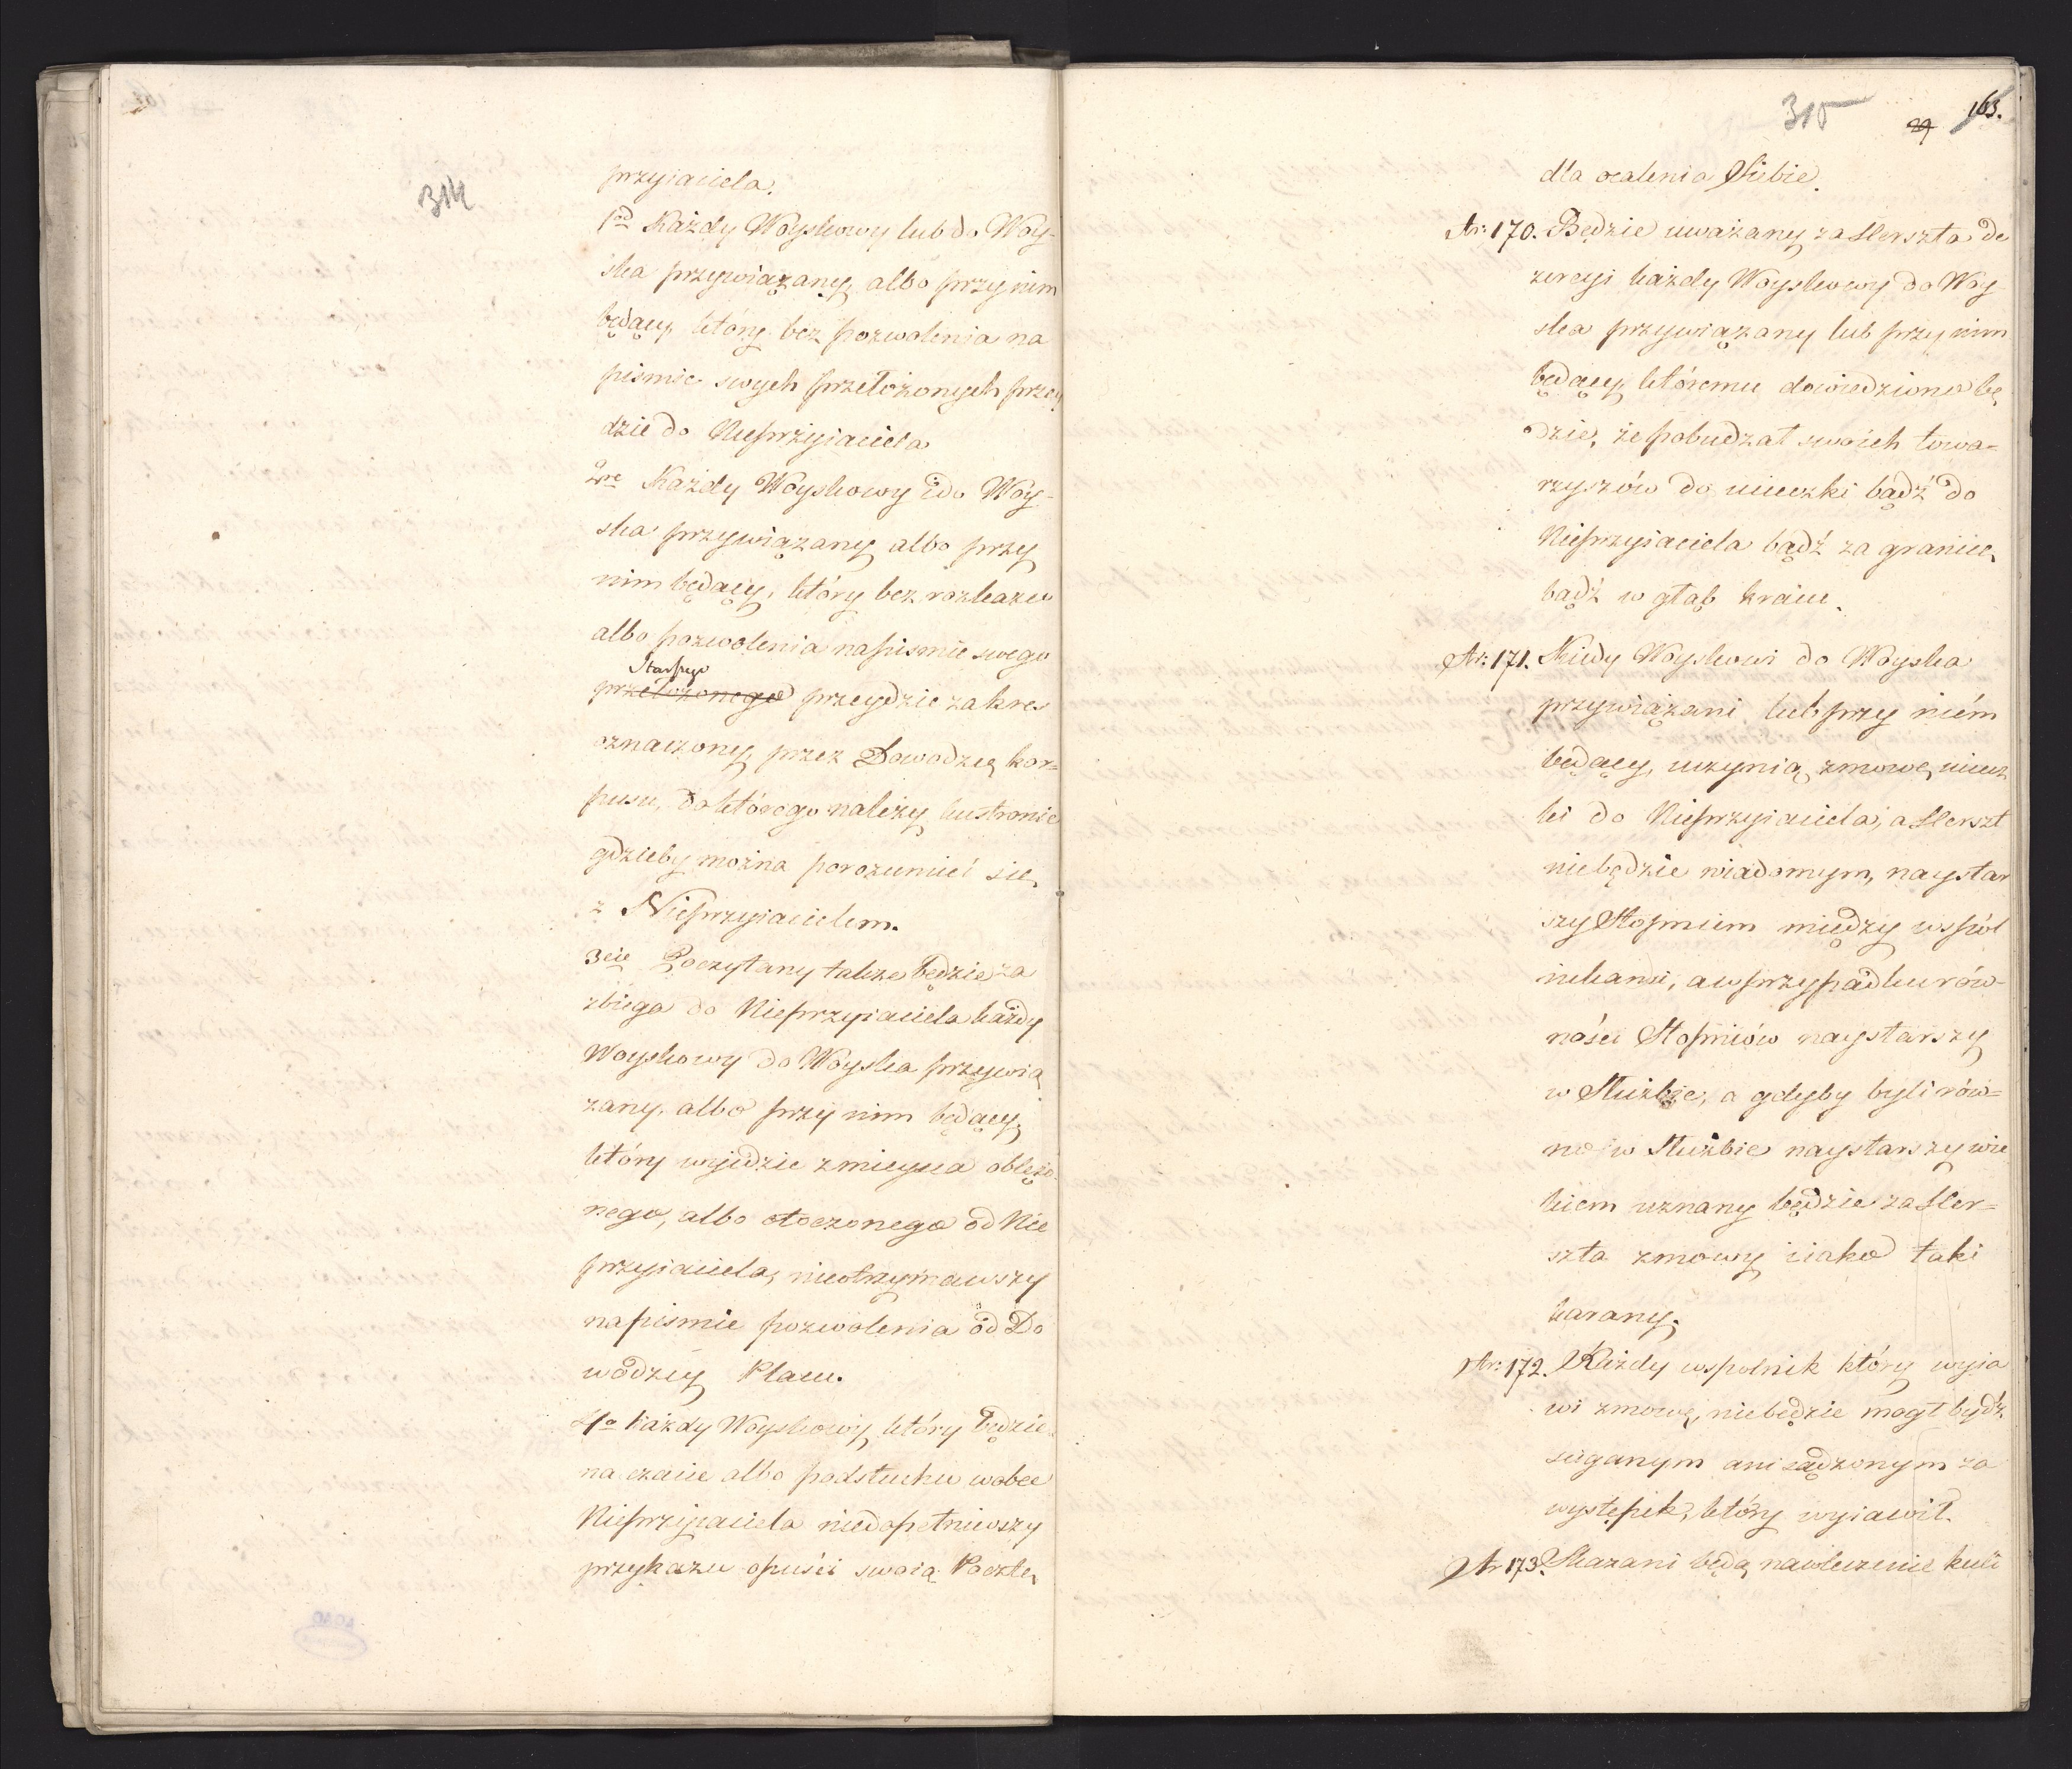 314
przyiaciela.
1od Każdy Woyskowy lub do Woy-
ska przywiązany, albo przy nim
będący, który bez pozwolenia na
pismie swych przełożonych przey
dzie do Nieprzyiaciela
2re Każdy Woyskowy ido Woy-
ska przywiązany albo przy
nim będący, który bez rozkazu
albo pozwolenia napismie swego
Starszego
przełożonego przeydzie zakres
oznaczony, przez Dowodzcę kor=
pusu, doktórego należy, kustronie
gdzieby można porozumieć się,
z Nieprzyiacielem.
3cie Poczytany takze będzie za
zbiega do Nieprzyiaciela każdy
Woyskowy do Woyska przywią
zany, albo przy nim będący,
który wyidzie zmieysca oblężo
nego, albo otoczonego od Nie
przyiaciela, nieotrzymawszy
napismie pozwolenia od Do
wodzcy Placu.
4o każdy Woyskowy, który będzie
na czacie albo podsłuchu wobec
Nieprzyiaciela niedopełniwszy
przykazu opuści swoią Pocztę,
315
29 163.
dla ocalenia Siebie.
Ar: 170. Będzie uważany za Herszta de
zercyi każdy Woyskowy do Woy
ska przywiązany lub przy nim
będący, któremu dowiedziono bę
dzie, że pobudzał swoich towa-
rzyszów do ucieczki bądź do
Nieprzyiaciela bądź za granicę,
bądź w głąb kraiu.
Ar: 171. Kiedy Woyskowi do Woyska
przywiązani lub przy niém
będący, uczynią zmowę, uciecz
ki do Nieprzyiaciela, a Herszt
niebędzie wiadomym, naystar
szy Stopniem między wspól
nikami, awprzypadku rów-
ności Stopniów naystarszy
w Służbie, a gdyby byli rów=
no w Służbie naystarszy wie
kiem uznany będzie za Her=
szta zmowy iiako taki
karany.
Ar: 172. Każdy wspolnik który wyia
wi zmowę, niebędzie mogł bydź
sciganym ani sądzonym za
występek, który wyiawił.
Ar 173. Skazani będą nawleczenie kuli